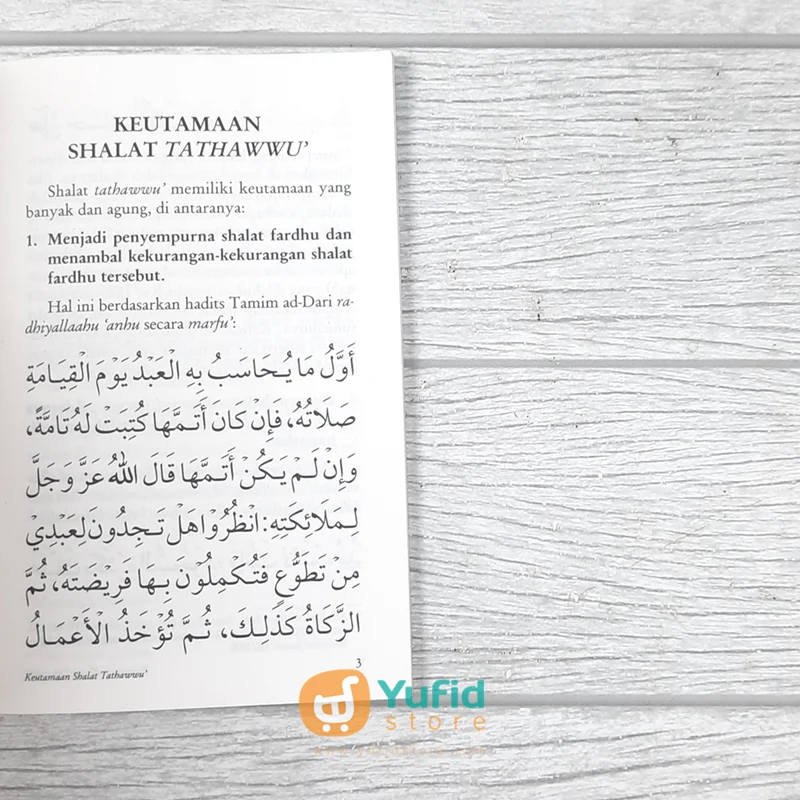 KEUTAMAAN
SHALAT TATHAWWU’
Shalat tathawwu’ memiliki keutamaan yang
banyak dan agung, di antaranya:
1. Menjadi penyempurna shalat fardhu dan
menambal kekurangan-kekurangan shalat
fardhu tersebut.
Hal ini berdasarkan hadits Tamim ad-Dari ra-
dhiyallaahu ‘anhu secara marfu’:
أَوَّلُ مَا يُحَاسَبُ بِهِ الْعَبْدُ يَوْمَ الْقِيَامَةِ
صَلَاتُهُ، فَإِنْ كَانَ أَتَمَّهَا كُتِبَتْ لَهُ تَامَّةً،
وَإِنْ لَمْ يَكُنْ أَتَمَّهَا قَالَ اللهُ عَزَّ وَجَلَّ
لِمَلَائِكَتِهِ: انْظُرُوا هَلْ تَجِدُونَ لِعَبْدِي
مِنْ تَطَوُّعٍ فَتُكْمِلُوْنَ بِهَا فَرِيْضَتَهُ، ثُمَّ
الزَّكَاةُ كَذَلِكَ، ثُمَّ تُؤْخَذُ الْأَعْمَالُ
3
Keutamaan Shalat Tathawwu’
Yufid
store
www.yufidstore.com